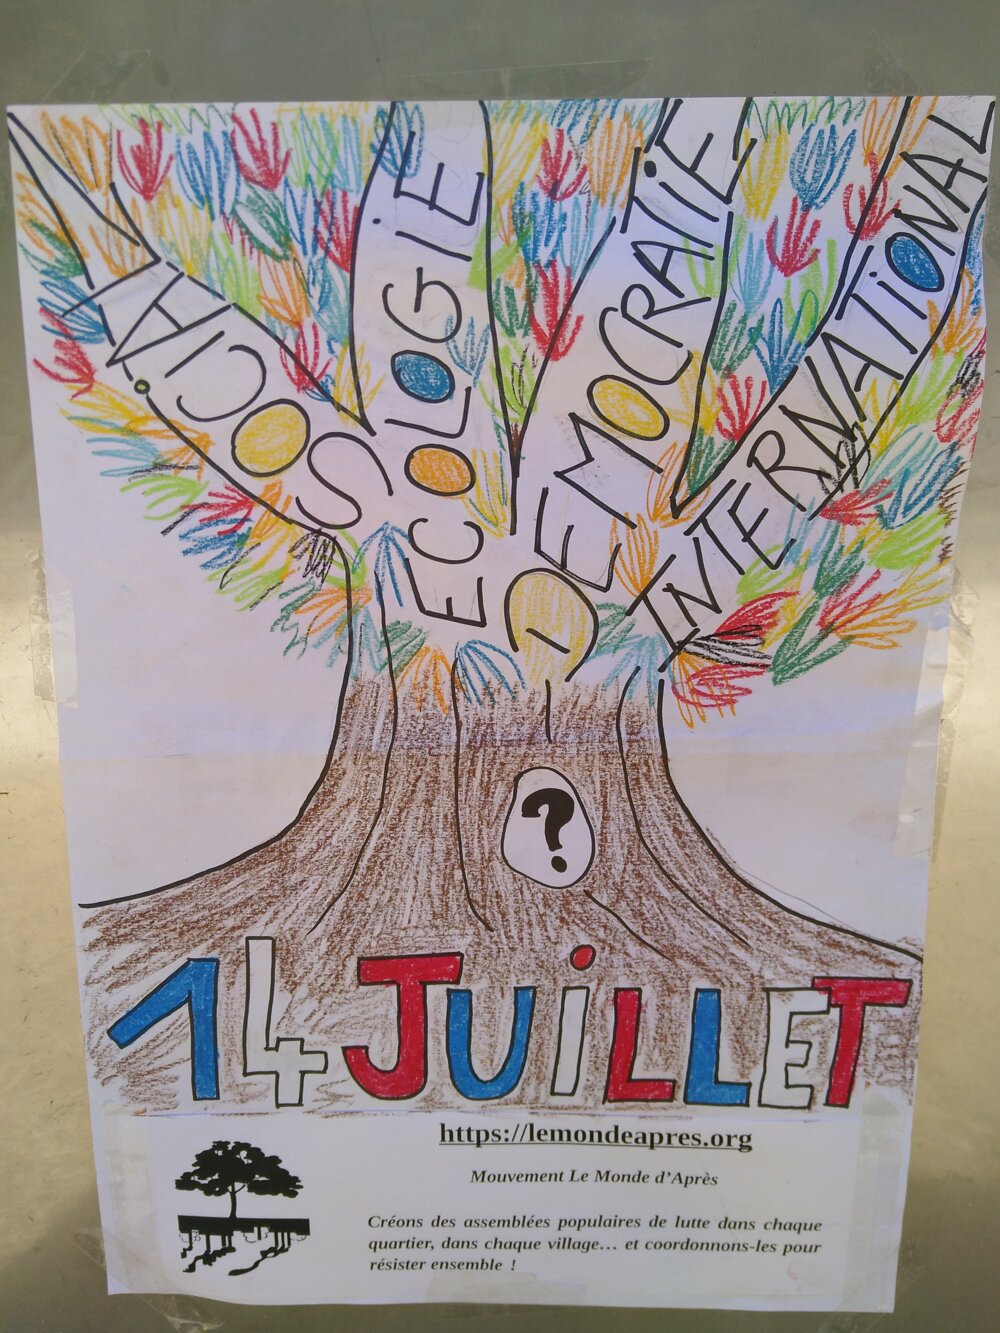 SOCIAL
ECOLOGIE
DEMOCRATIE
INTERNATIONAL
?
14 JUILLET
https://lemondeapres.org
Mouvement Le Monde d'Après
Créons des assemblées populaires de lutte dans chaque
quartier, dans chaque village… et coordonnons-les pour
résister ensemble !